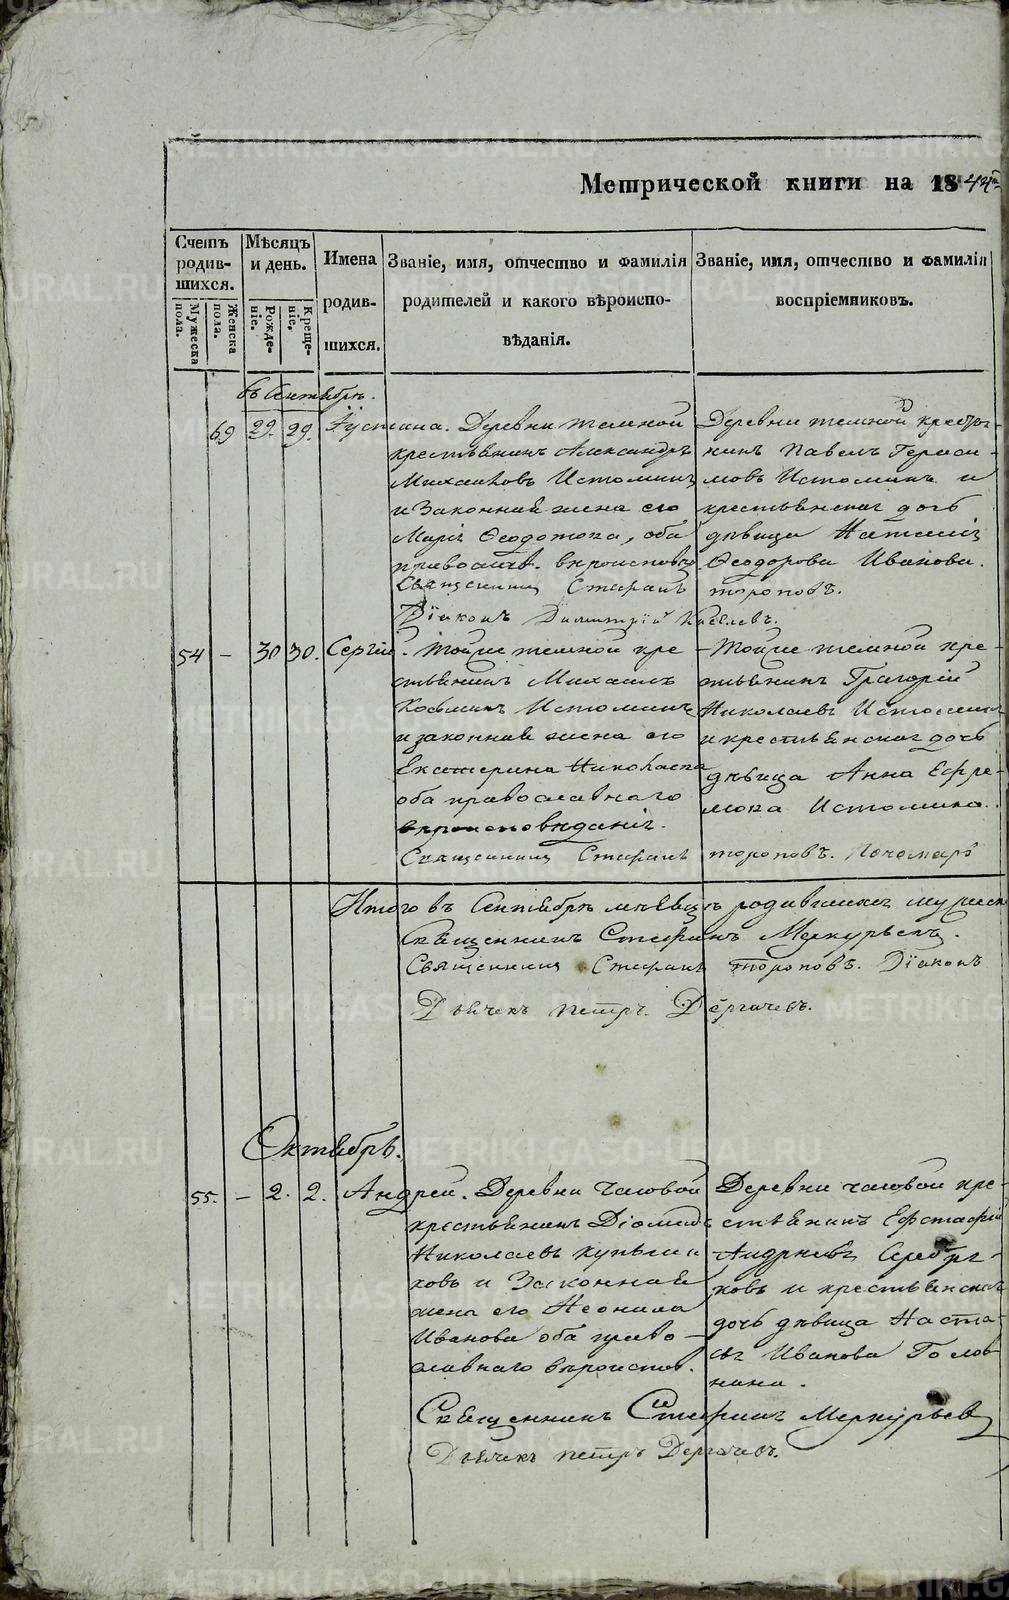 Метрической книги на 1844й
Счетъ родив-шихся.
Мужеска пола.
Женска пола.
Мѣсяцъ и день.
Рожде-ніе.
Креще-ніе.
Имена родив-шихся.
Званіе, имя, отчество и фамилія родителей и какого вѣроиспо-вѣданія.
Званіе, имя, отчество и фамилія воспріемниковъ.
въ Сентябрѣ.
69 29. 29. Іустина.
Деревни темной
крестьянинъ Александръ
Михайловъ Истоминъ
и Законная жена его
Марія Ѳеодотова, оба
православ. вѣроисповѣд
Деревни темной крестья-
нинъ Павелъ Гераси-
мовъ Истоминъ и
крестьянская дочь
дѣвица Наталія
Ѳеодорова Иванова.
Священникъ Стефанъ Тороповъ.
Діаконъ Димитрій Киселевъ.
54 – 30 30. Сергій.
Тойже темной кре
стьянинъ Михаилъ
Козминъ Истоминъ
и законная жена его
Екатерина Николаева
оба православнаго
вѣроисповѣданія.
Тойже темной кре-
стьянинъ Григорій
Николаевъ Истоминъ
и крестьянская дочь
дѣвица Анна Ефре-
мова Истомина.
Священникъ Стефанъ Тороповъ. Пономарь
Итого въ Сентябрѣ мѣсяцѣ родившихся мужеск
Священникъ Стефанъ Меркурьевъ.
Священникъ Стефанъ Тороповъ. Діаконъ
Дьячекъ Петръ Дергачевъ.
Октябрь.
55. – 2. 2. Андрей.
Деревни Часовой
крестьянинъ Діомидъ
Николаевъ
ковъ и Законная
жена его Неонила
Иванова оба право-
славнаго вѣроиспов.
Деревни часовой кре-
стьянинъ Ефстафій
Андреевъ Серебря-
ковъ и крестьянская
дочь дѣвица Наста-
сья Иванова Голов
нина.
Священникъ Стефанъ Меркурьевъ
Дьячекъ Петръ Дергачевъ.
METRIKI.GASO-URAL.RU